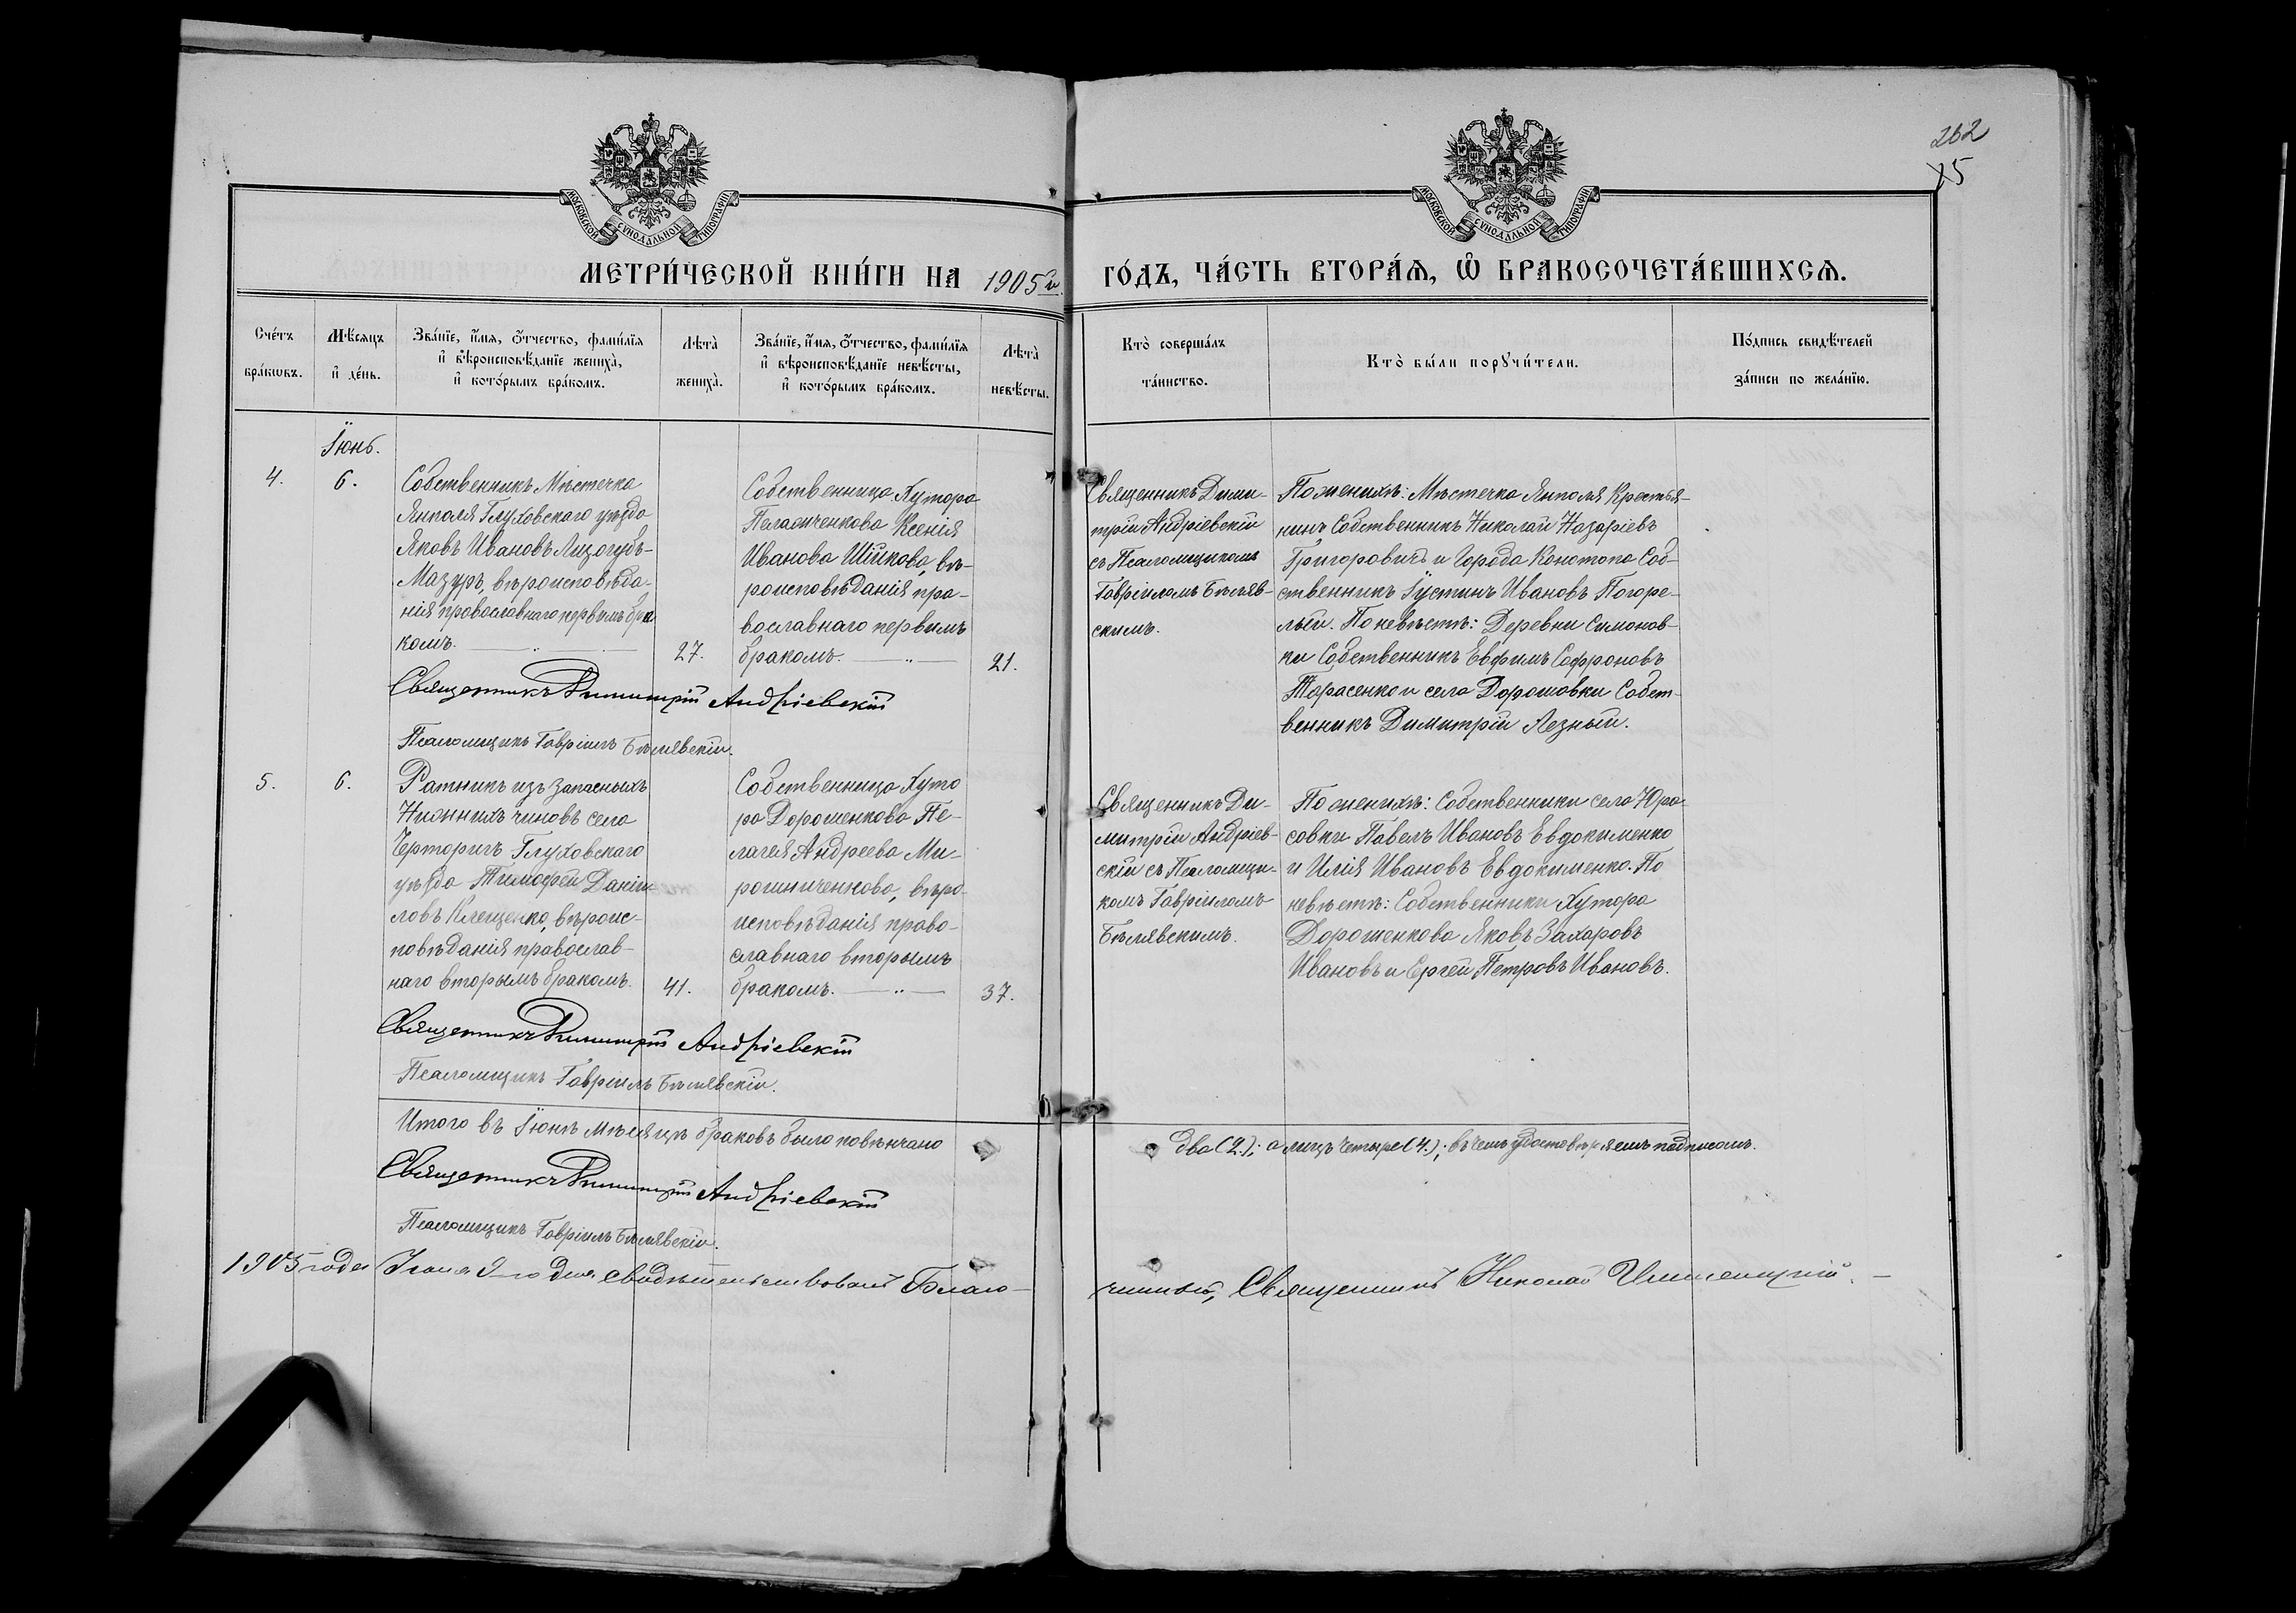 262
15
МОСКОВСКОЙ СУНОДАЛЬНОЙ ТИПОГРАФІИ
МОСКОВСКОЙ СУНОДАЛЬНОЙ ТИПОГРАФІИ
МЕТРИ́ЧЕСКОЙ КНИ́ГИ НА 1905й
ГО́ДЪ, ЧА́СТЬ ВТОРА́Ѧ, Ѽ БРАКОСОЧЕТА́ВШИХСѦ.
Сче́тъ
бра́кѡвъ.
Мѣ́сяцъ
и҆ де́нь.
Зва́нїе, и҆́мѧ, ѻ҆́тчество, фами́лїѧ
и҆ вѣ́роисповѣ́данїе жениха̀,
и҆ кото́рымъ бра́комъ.
Лѣта̀
жениха̀.
Зва́нїе, и҆́мѧ, ѻ҆́тчество, фами́лїѧ
и҆ вѣ́роисповѣ́данїе невѣ́сты,
и҆ кото́рымъ бра́комъ.
Лѣта̀
невѣ́сты.
Кто̀ соверша́лъ
та́инство.
Кто̀ бы́ли порꙋчи́тели.
По́дпись свидѣ́телей
за́писи по жела́нїю.
Іюнь.
4.
6.
Собственникъ Мѣстечка
Янполя Глуховскаго уѣзда
Яковъ Ивановъ Лизогубъ-
Мазуръ, вѣроисповѣда-
нія православнаго первымъ бра
комъ.
27.
Собственница Хутора
Пелаѳиченкова Ксенія
Иванова Шійкова, вѣ-
роисповѣданія пра-
вославнаго первымъ
бракомъ.
21.
Священникъ Дими-
трій Андріевскій
съ Псаломщикомъ
Гавріиломъ Бѣляв-
скимъ.
По женихѣ: Мѣстечка Янполя Крестья-
нинъ Собственникъ Николай Назаріевъ
Григоровичъ и Города Конотопа Соб-
ственникъ Іустинъ Ивановъ Погоре-
лый. По невѣстѣ: Деревни Симонов-
ки Собственникъ Евфимъ Софроновъ
Тарасенко и села Дорошовки Собст-
венникъ Димитрій Лезный.
Священникъ Димитрій Андріевскій
Псаломщикъ Гавріилъ Бѣлявскій.
5.
6.
Ратникъ изъ запасныхъ
Нижнихъ чиновъ села
Черторигъ Глуховскаго
уѣзда Тимофей Даніи
ловъ Клещенко, вѣроис-
повѣданія православ-
наго вторымъ бракомъ.
41.
Собственница Хуто
ра Дорошенкова Пе-
лагея Андреева Ми-
рошниченкова, вѣро-
исповѣданія право-
славнаго вторымъ
бракомъ.
37.
Священникъ Ди-
митрій Андріев-
скій съ Псаломщи-
комъ Гавріиломъ
Бѣлявскимъ.
По женихѣ: Собственники села Юра-
совки Павелъ Ивановъ Евдокименко
и Илія Ивановъ Евдокименко. По
невѣстѣ: Собственники Хутора
Дорошенкова Яковъ Захаровъ
Ивановъ и Сергей Петровъ Ивановъ.
Священникъ Димитрій Андріевскій
Псаломщикъ Гавріилъ Бѣлявскій.
Итого въ Іюнѣ мѣсяцѣ браковъ было повѣнчано
два (2.); а лицъ четыре (4.); въ чемъ удостовѣряемъ подписомъ.
Священникъ Димитрій Андріевскій
Псаломщикъ Гавріилъ Бѣлявскій.
1905 года дня свидѣтельствовалъ Благо-
чинный, Священникъ Николай